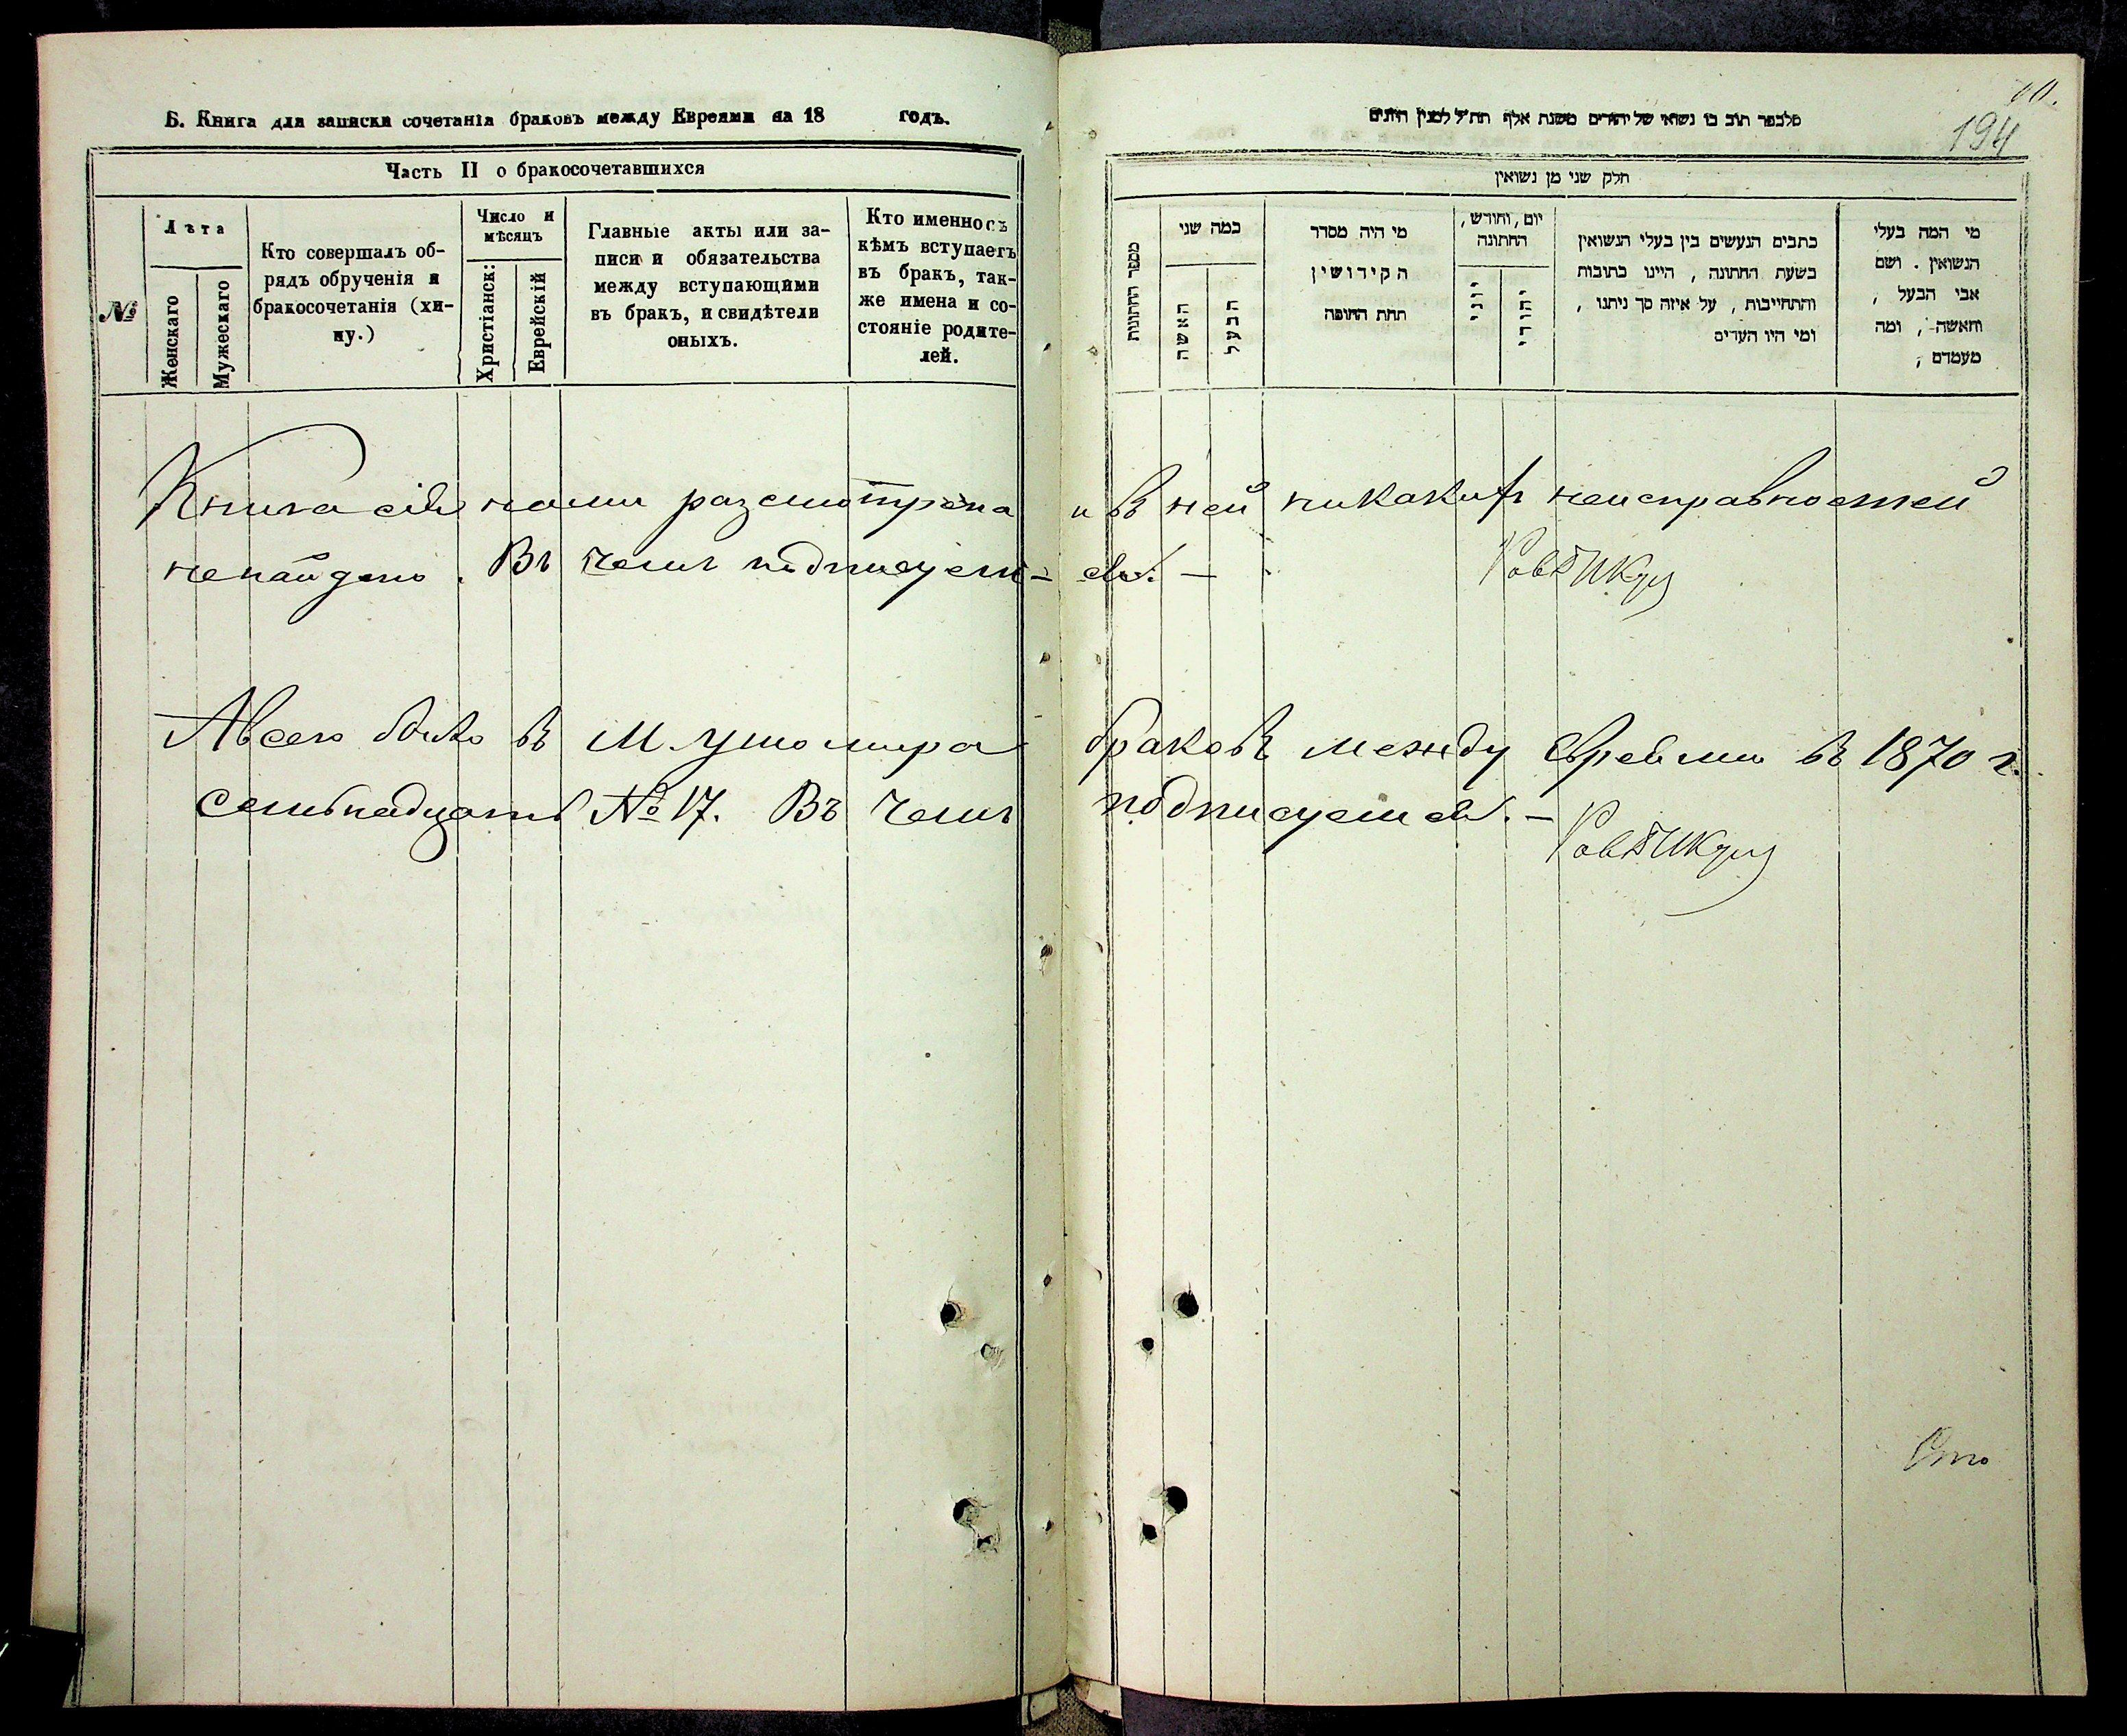 Б. Книга для записки сочетанія браковъ между Евреями на 18 годъ.
Часть II о бракосочетавшихся
№
Лѣта
Женскаго
Мужескаго
Кто совершалъ об-
рядъ обрученія и
бракосочетанія (хи-
пу.)
Число и
мѣсяцъ
Христіанск:
Еврейскій
Главные акты или за-
писи и обязательства
между вступающими
въ бракъ, и свидѣтели
оныхъ.
Кто именно съ
кѣмъ вступаетъ
въ бракъ, так-
же имена и со-
стояніе родите-
лей.
194
חלק שני מן נשואין
מספר החתונות
במה שני
האשה
הבעל
מי היה מסדר
הקידושין
תחת החופה
יום, וחודש,
החתונה
יוני
יהודי
כתבים הנעשים בין בעלי הנשואין
בשעת החתונה, היינו כתובות
והתחייבות, על איזה סך ניתנו,
ומי היו העדים
מי המה בעלי
הנשואין. ושם
אבי הבעל,
והאשה, ומה
מעמדם,
Книга сія нами разсмотрена и въ ней никакихъ неисправностей
ненайдено. Въ чемъ подписуем-ся. —
А всего было въ М. Ушомира браковъ между Евреями въ 1870 г.
семьнадцать № 17. Въ чемъ подписуемся. —